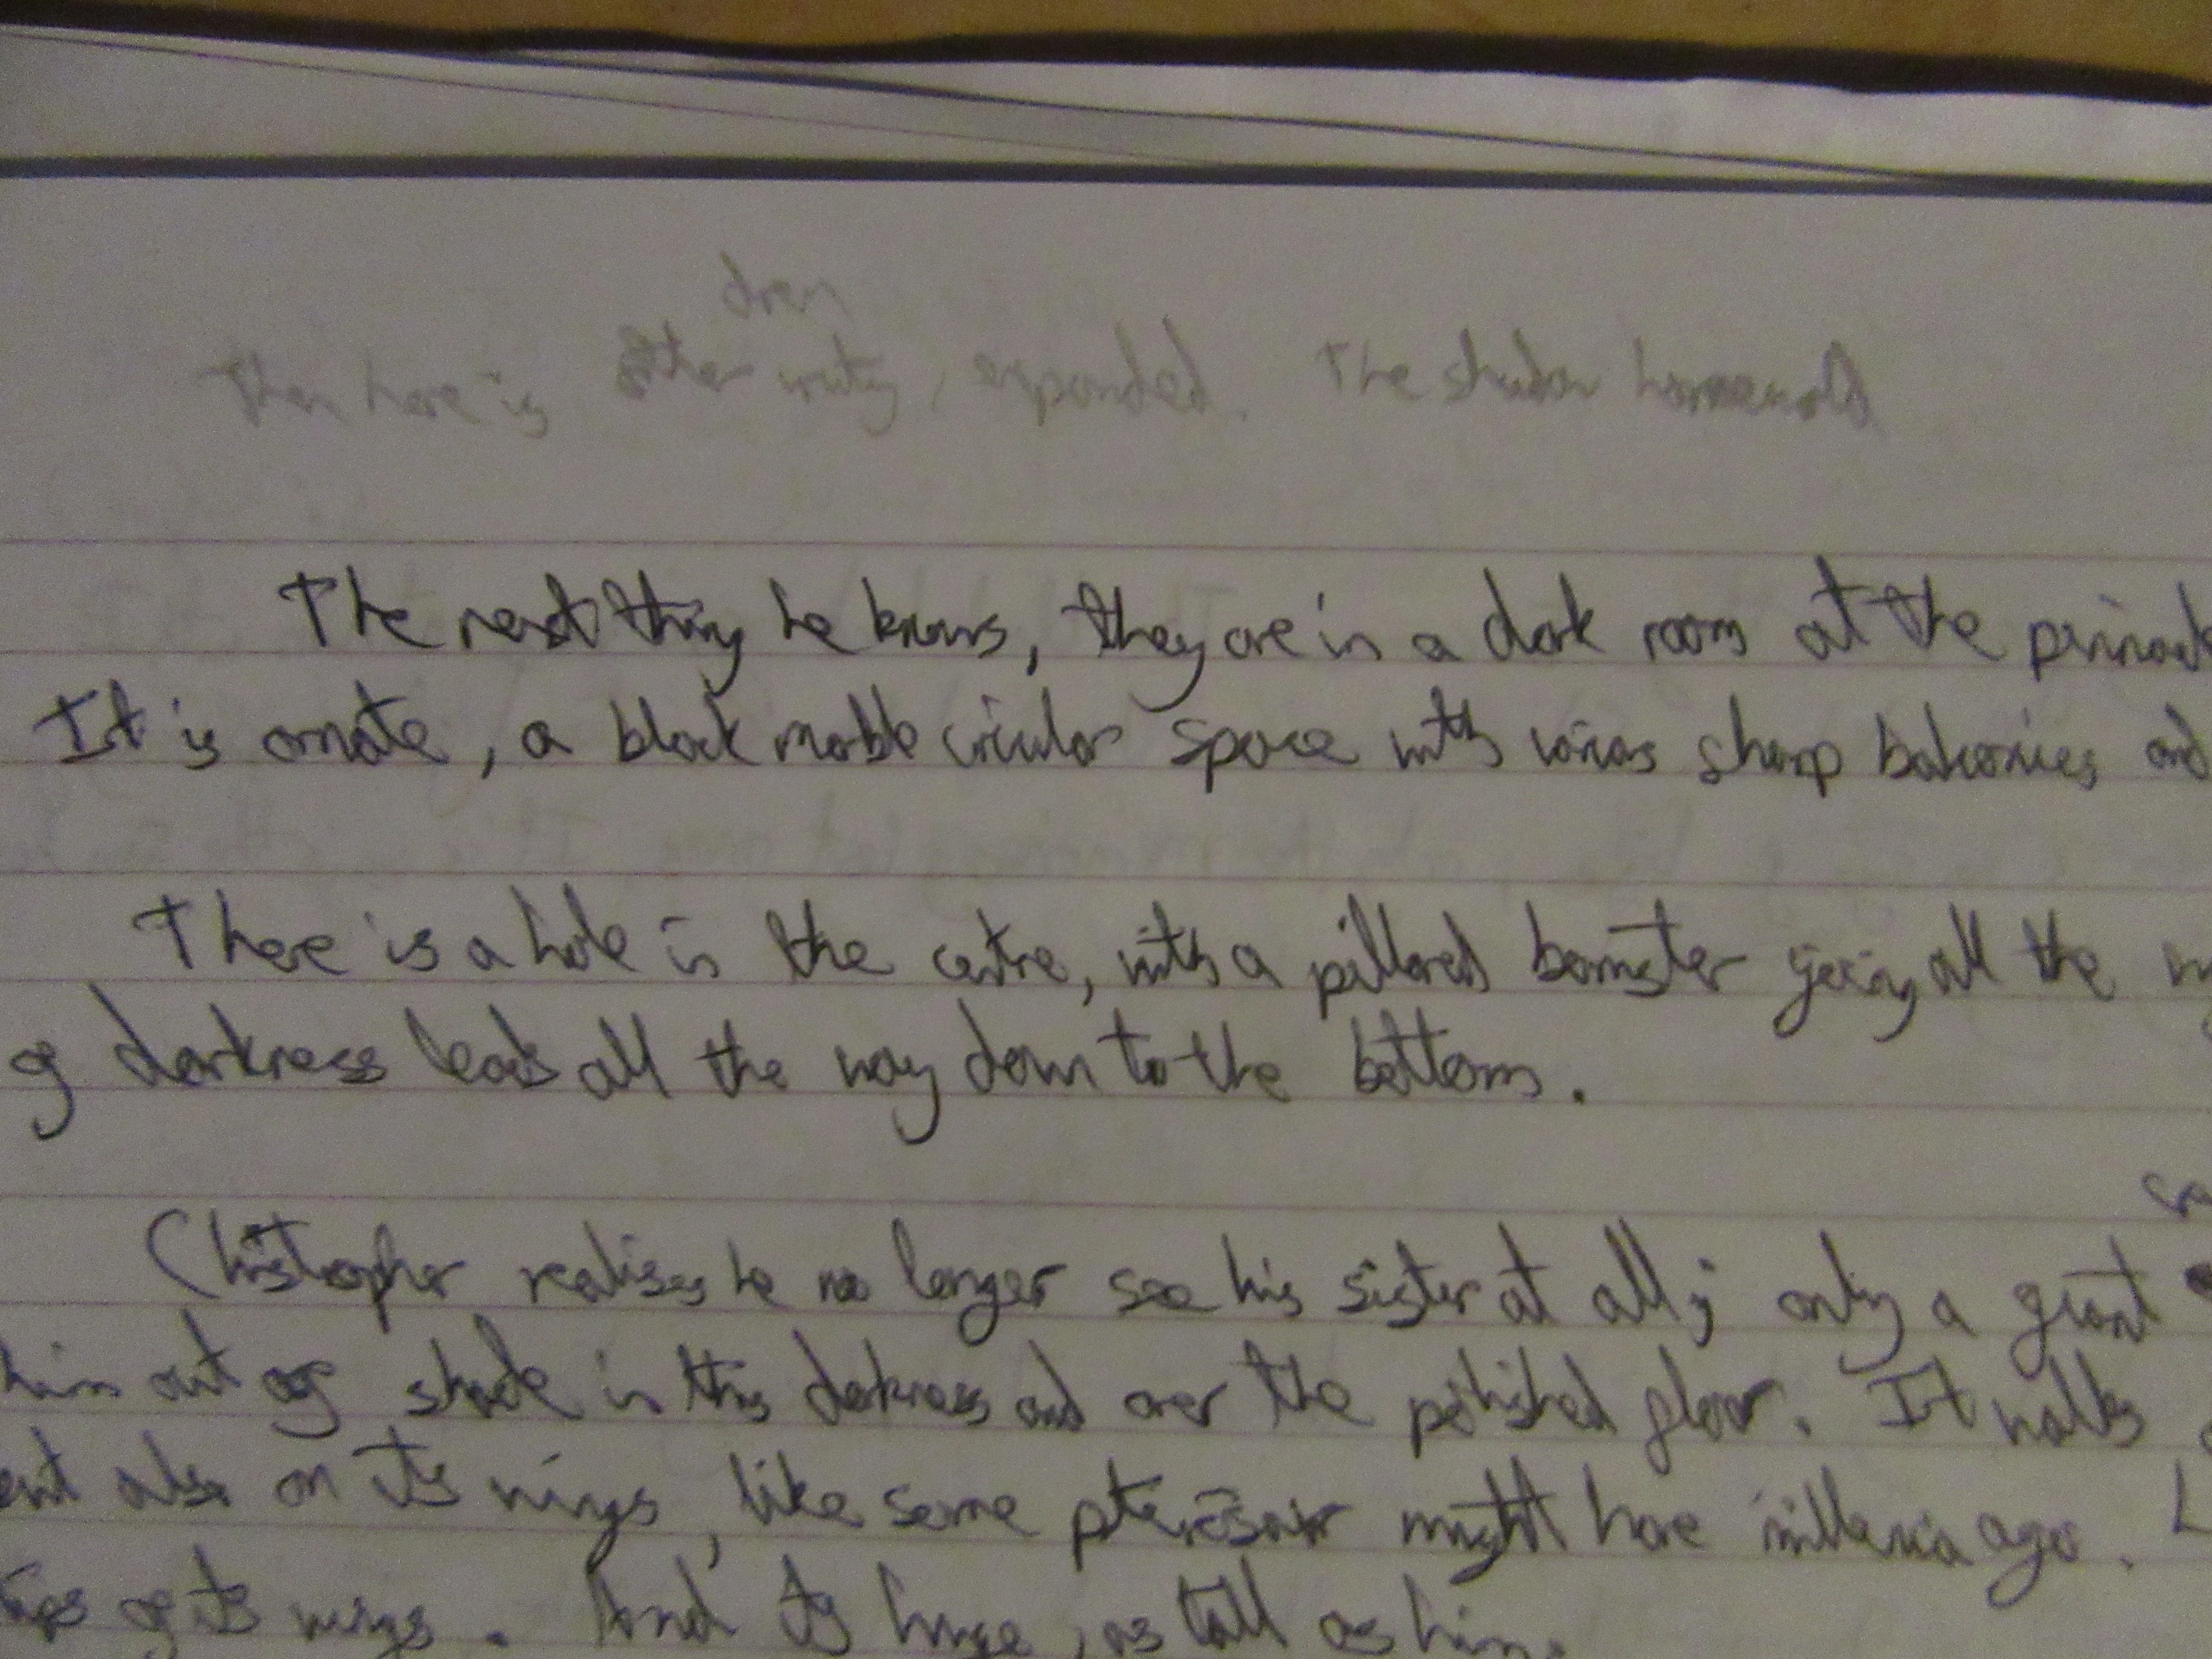 Then here is other writing, expanded. The shadow
The next thing he knows, they are in a dark room at the
It is ornate, a black marble circular space with various sharp balconies and
There is a hole in the centre, with a pillared bannister going all the
of darkness leads all the way down to the bottom.
Christopher realises he no longer see his sister at all; only a giant
him out of shade in this darkness and over the polished floor. It walks
also on its wings, like some pterosaur might have millenia ago.
of its wings. And its huge, as tall as him.